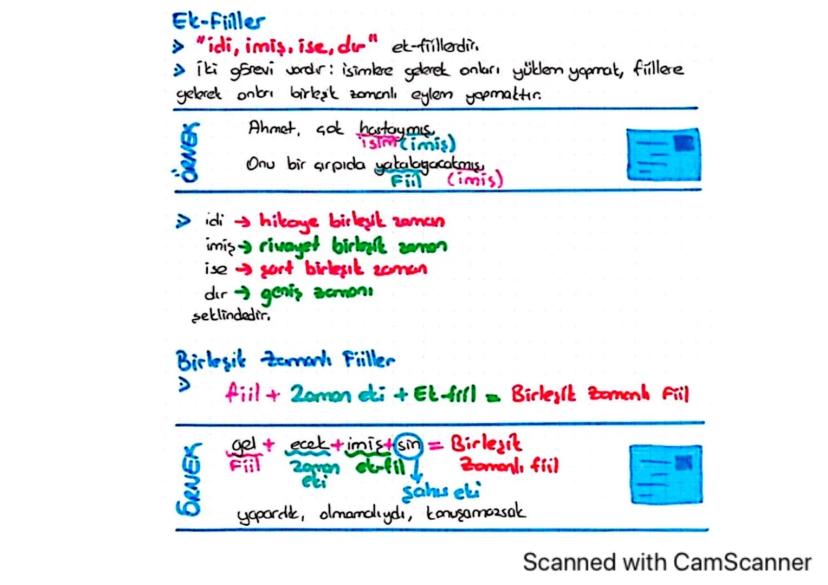 Ek-Fiiller
> "idi, imiş, ise, dır" ek-fiillerdir.
> İki görevi vardır: isimlere gelerek onları yüklem yapmak, fiillere
gelerek onları birleşik zamanlı eylem yapmaktır.
ÖRNEK
Ahmet, çok hastaymış.
isim (imiş)
Onu bir çırpıda yakalayacakmış.
Fiil (imiş)
> idi → hikaye birleşik zaman
imiş → rivayet birleşik zaman
ise → şart birleşik zaman
dır → geniş zamanı
şeklindedir.
Birleşik Zamanlı Fiiller
>
fiil + Zaman eki + Ek-fiil = Birleşik Zamanlı Fiil
ÖRNEK
gel + ecek + imiş + sin = Birleşik
Fiil zaman ek-fiil Zamanlı fiil
eki
şahıs eki
yapardık, olmamalıydı, konuşamazsak
Scanned with CamScanner